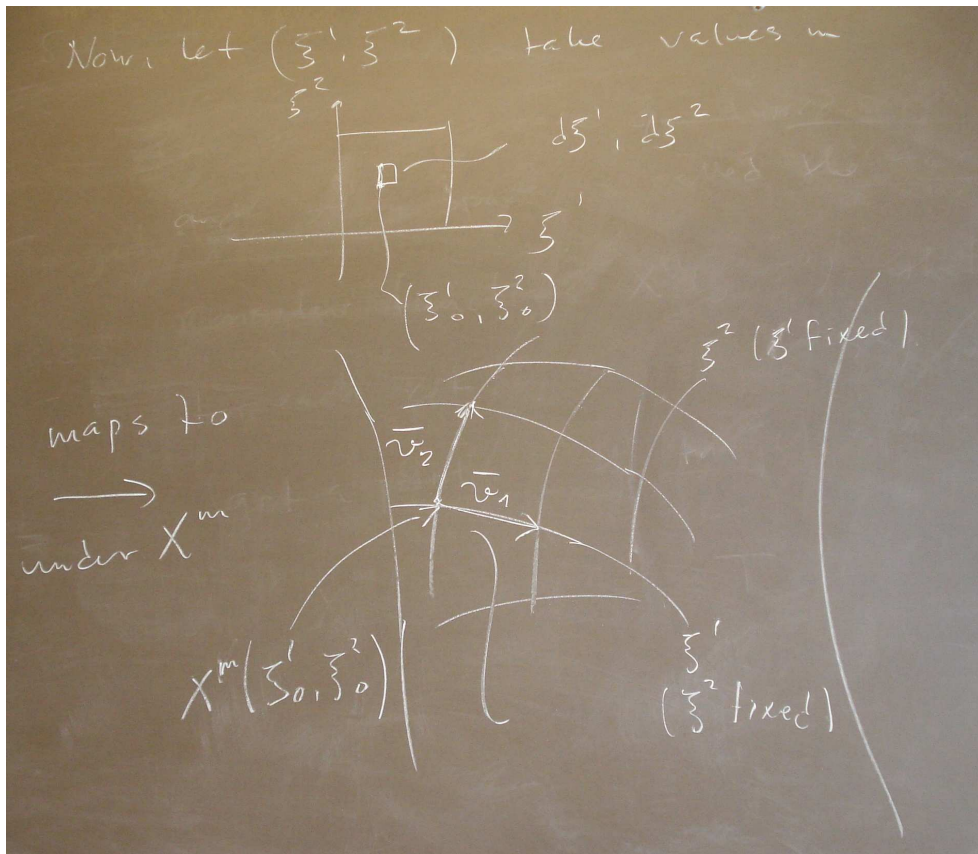 Now, let (ξ¹, ξ²) take values in
ξ²
dξ¹, dξ²
ξ¹
(ξ¹₀, ξ²₀)
ξ² (ξ¹ fixed)
maps to
v̄₂
v̄₁
→
under Xᵐ
ξ¹
Xᵐ(ξ¹₀, ξ²₀)
(ξ² fixed)